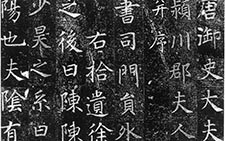 唐御史大夫
潁川郡夫人
并序
書司門員外
右拾遺徐
之後曰陳陳
少昊之系曰
陽也夫陰有